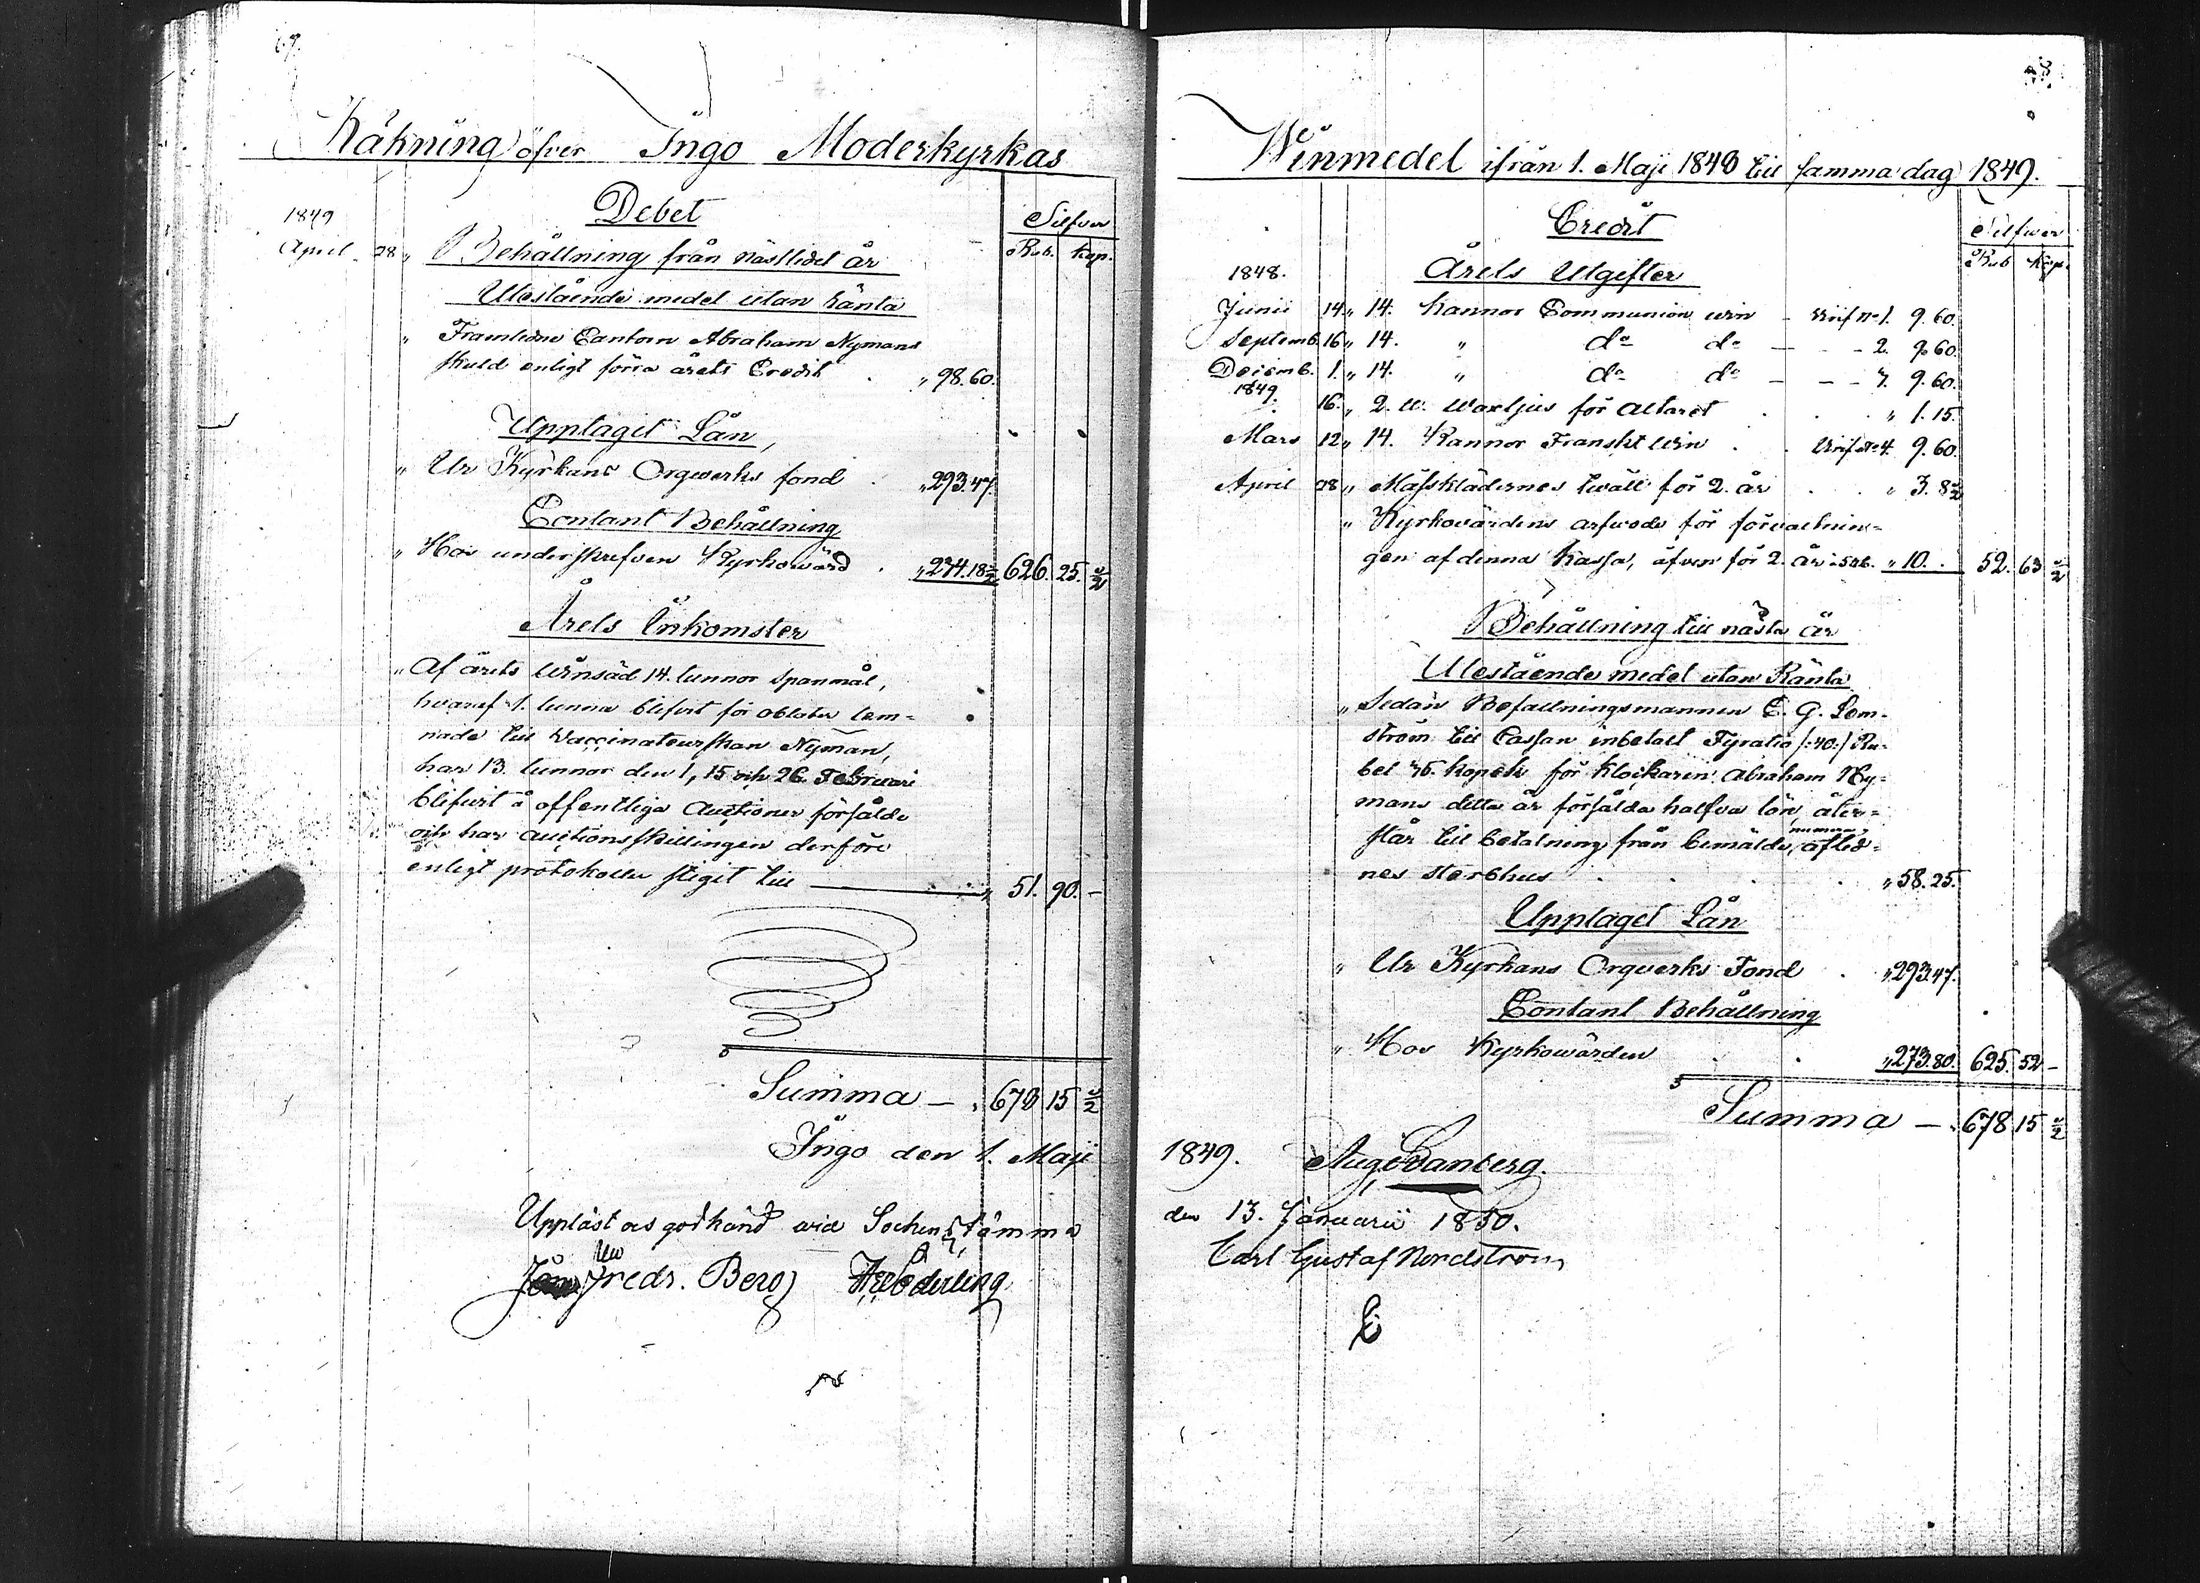 Räkning öfver Ingo Moderkyrkas
Debet
Silfver
Rub. Kop.
1849
April 28 " Behållning från nästledet år
Utestående medel utan ränta
" Framledne Cantorn Abraham Nymans
skuld enligt förra årets Credit . " 98. 60.
Upptaget Lån,
" Ur Kyrkans Orgwerks fond . " 293. 47.
Contant Behållning
" Hos underskrefven Kyrkowärd . " 234. 18 1/2 626. 25. 1/2
Årets Inkomster
" Af årets Winsäd 14. tunnor Spanmål,
hvaraf 1. tunna blifvit för oblater lem=
nade till Vaccinateurskan Nyman,
har 13. tunnor den 1, 15 och 26. Februari
blifvit å offentliga Auctioner försålde
och har auctionsskillingen derföre
enligt protokoller stigit till " 51. 90. -
Summa - " 678 15 1/2
Ingo den 1. Maji
Uppläst och godkänd wid Sockenstämma
Fredr. Berg
Winmedel ifrån 1. Maji 1848 till samma dag 1849.
Credit
Silfwer
Rub Kop.
1848. Årets Utgifter
Junii 14 " 14. Kannor Communion win - Verif No 1. 9. 60.
Septemb. 16 " 14. " do do - - 2. 9. 60.
Decemb. 1. " 14. " do do - - 3. 9. 60.
1849.
16. " 2. Waxljus för Altaret . . " 1. 15.
Mars 12 " 14. Kannor Franskt Win . . Verif No 4. 9. 60.
April 28 " Mässklädernes twätt för 2. år . . " 3. 8 1/2
" Kyrkovärdens arfwode för förvaltnin=
gen af denna Kassa, äfven för 2. år " 10. . 52. 63 1/2
Behållning till nästa år
Utestående medel utan Ränta
" Sedan Befallningsmannen C. G. Lem-
ström till Cassan inbetalt Fyratio /:40:/ Ru-
bel 35. kopek för Klockaren Abraham Ny=
mans detta år försålda halfva lön, åter=
står till betalning från bemälde, numera afled=
nes sterbhus . . . " 58. 25.
Upptaget Lån
" Ur Kyrkans Orgverks Fond . " 293 47.
Contant Behållning
" Hos Kyrkowärden . . " 273. 80. 625. 52 -
Summa - " 678 15 1/2
1849.
den 13. Januarii 1850.
Carl Gustaf Nordström